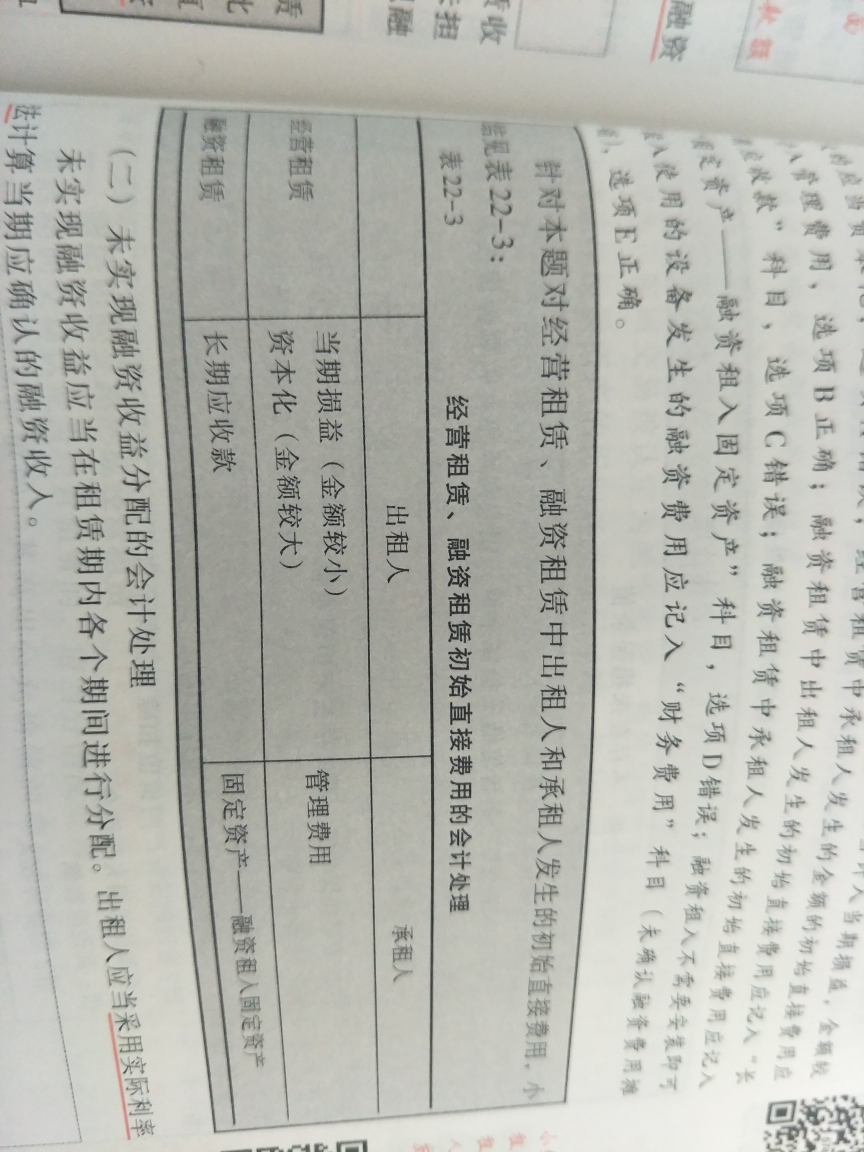 管理费用，选项B正确；融资租赁中出租人发生的初始直接费用应
款”科目，选项C错误；融资租赁中承租人发生的初始直接费用应记入“长
定资产——融资租入固定资产”科目，选项D错误；融资租入不需要安装即可
使用的设备发生的融资费用应记入“财务费用”科目（未确认融资费用摊
选项E正确。
针对本题对经营租赁、融资租赁中出租人和承租人发生的初始直接费用，小
结见表22-3：
表22-3
经营租赁、融资租赁初始直接费用的会计处理
出租人 承租人
经营租赁 当期损益（金额较小） 管理费用
资本化（金额较大）
融资租赁 长期应收款 固定资产——融资租入固定资产
（二）未实现融资收益分配的会计处理
未实现融资收益应当在租赁期内各个期间进行分配。出租人应当采用实际利率
法计算当期应确认的融资收入。